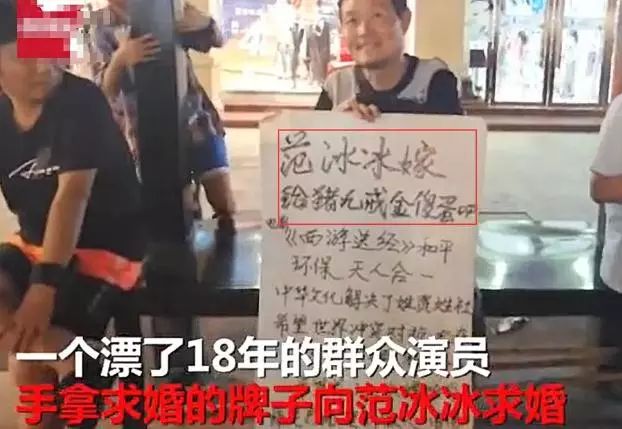 范冰冰嫁
给猪九戒金傻蛋吧
电影
《西游送经》和平
环保 天人合一
中华文化解决了姓资姓社
希望世界冲突对
一个漂了18年的群众演员
手拿求婚的牌子向范冰冰求婚